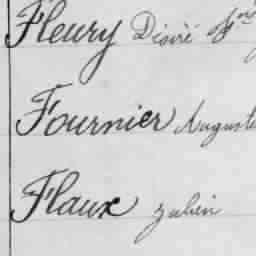 Fleury Désiré
Fournier Auguste
Flaux Julien